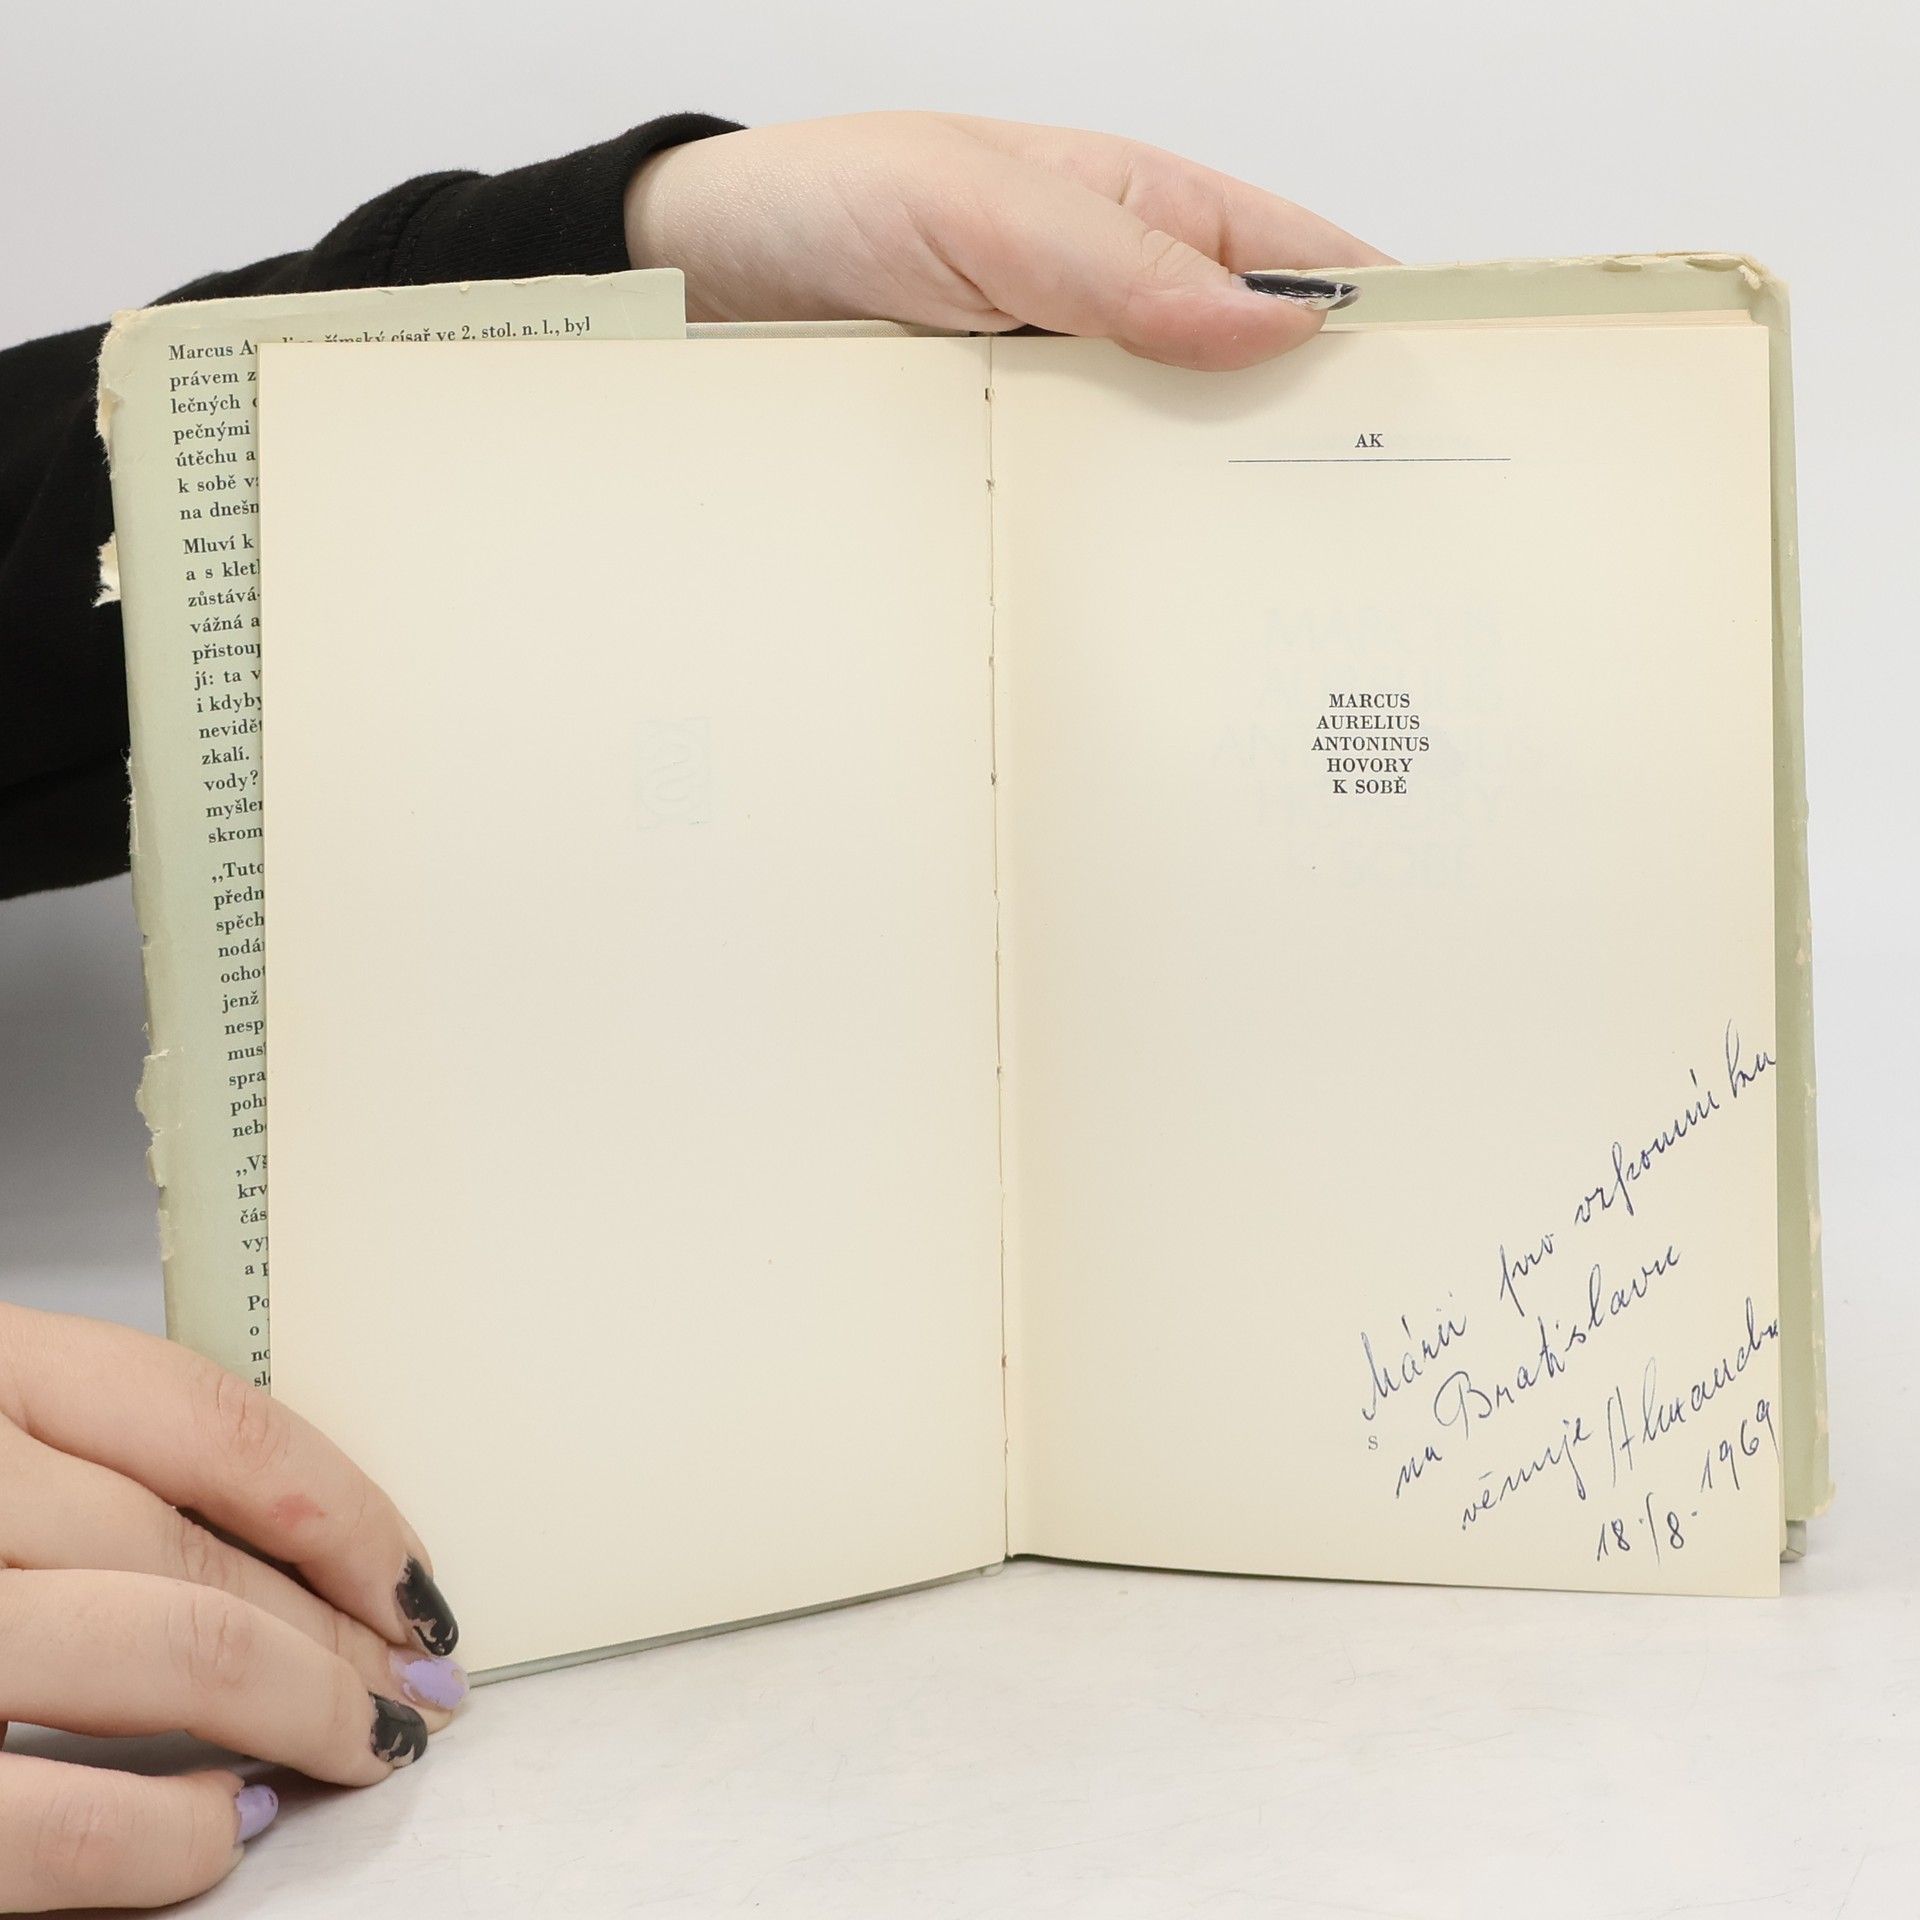 Marcus Aurelius, římský císař ve 2. stol. n. l., byl
právem z
lečných
pečnými
útěchu a
k sobě
na dnešn
Mluví k
a s klet
zůstává
vážná a
přistoup
jí: ta v
i kdyby
nevidět
zkalí.
vody?
myšlen
skrom
„Tuto
předn
spěch
nodá
ochot
jenž
nesp
mus
spra
poh
neb
„Vš
krv
čás
vyp
a p
Po
o
no
sl
AK
MARCUS
AURELIUS
ANTONINUS
HOVORY
K SOBĚ
Márii pro vzpomínku
na Bratislavu
věnuje Alexandr
18./8. 1969
S